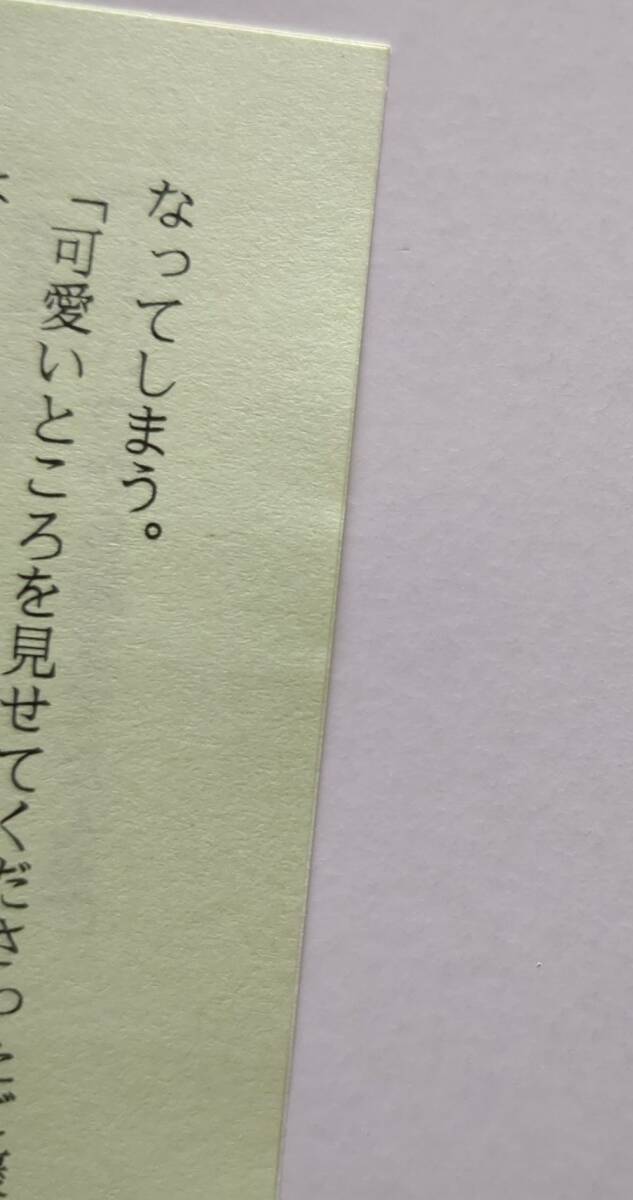 なってしまう。
「可愛いところを見せてくださっ